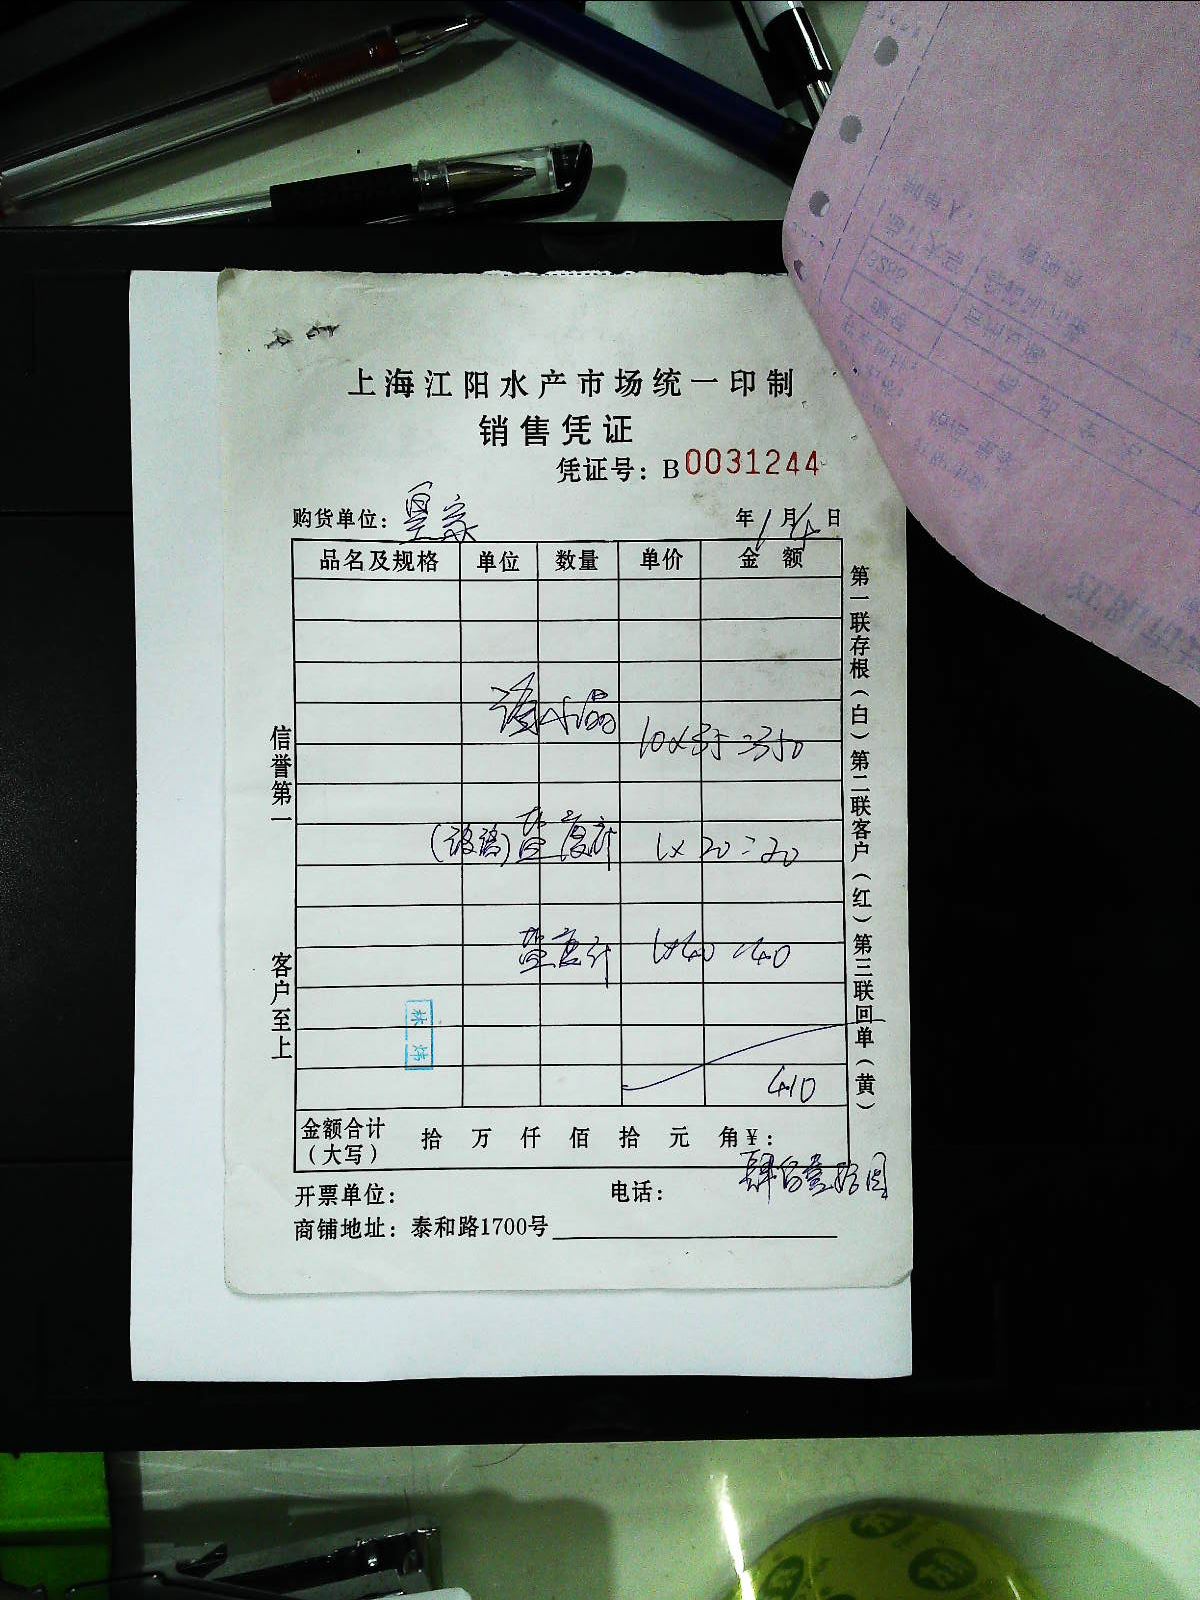 上海江阳水产市场统一印制
销售凭证
凭证号：B0031244
购货单位：皇家 年1月4日
品名及规格 单位 数量 单价 金额
海水晶 10×35=350
(玻璃)盐度计 1×20=20
盐度计 1×40=40
410
金额合计（大写） 拾 万 仟 佰 拾 元 角¥：
肆佰壹拾圆
开票单位： 电话：
商铺地址：泰和路1700号
信誉第一
客户至上
第一联存根（白）第二联客户（红）第三联回单（黄）